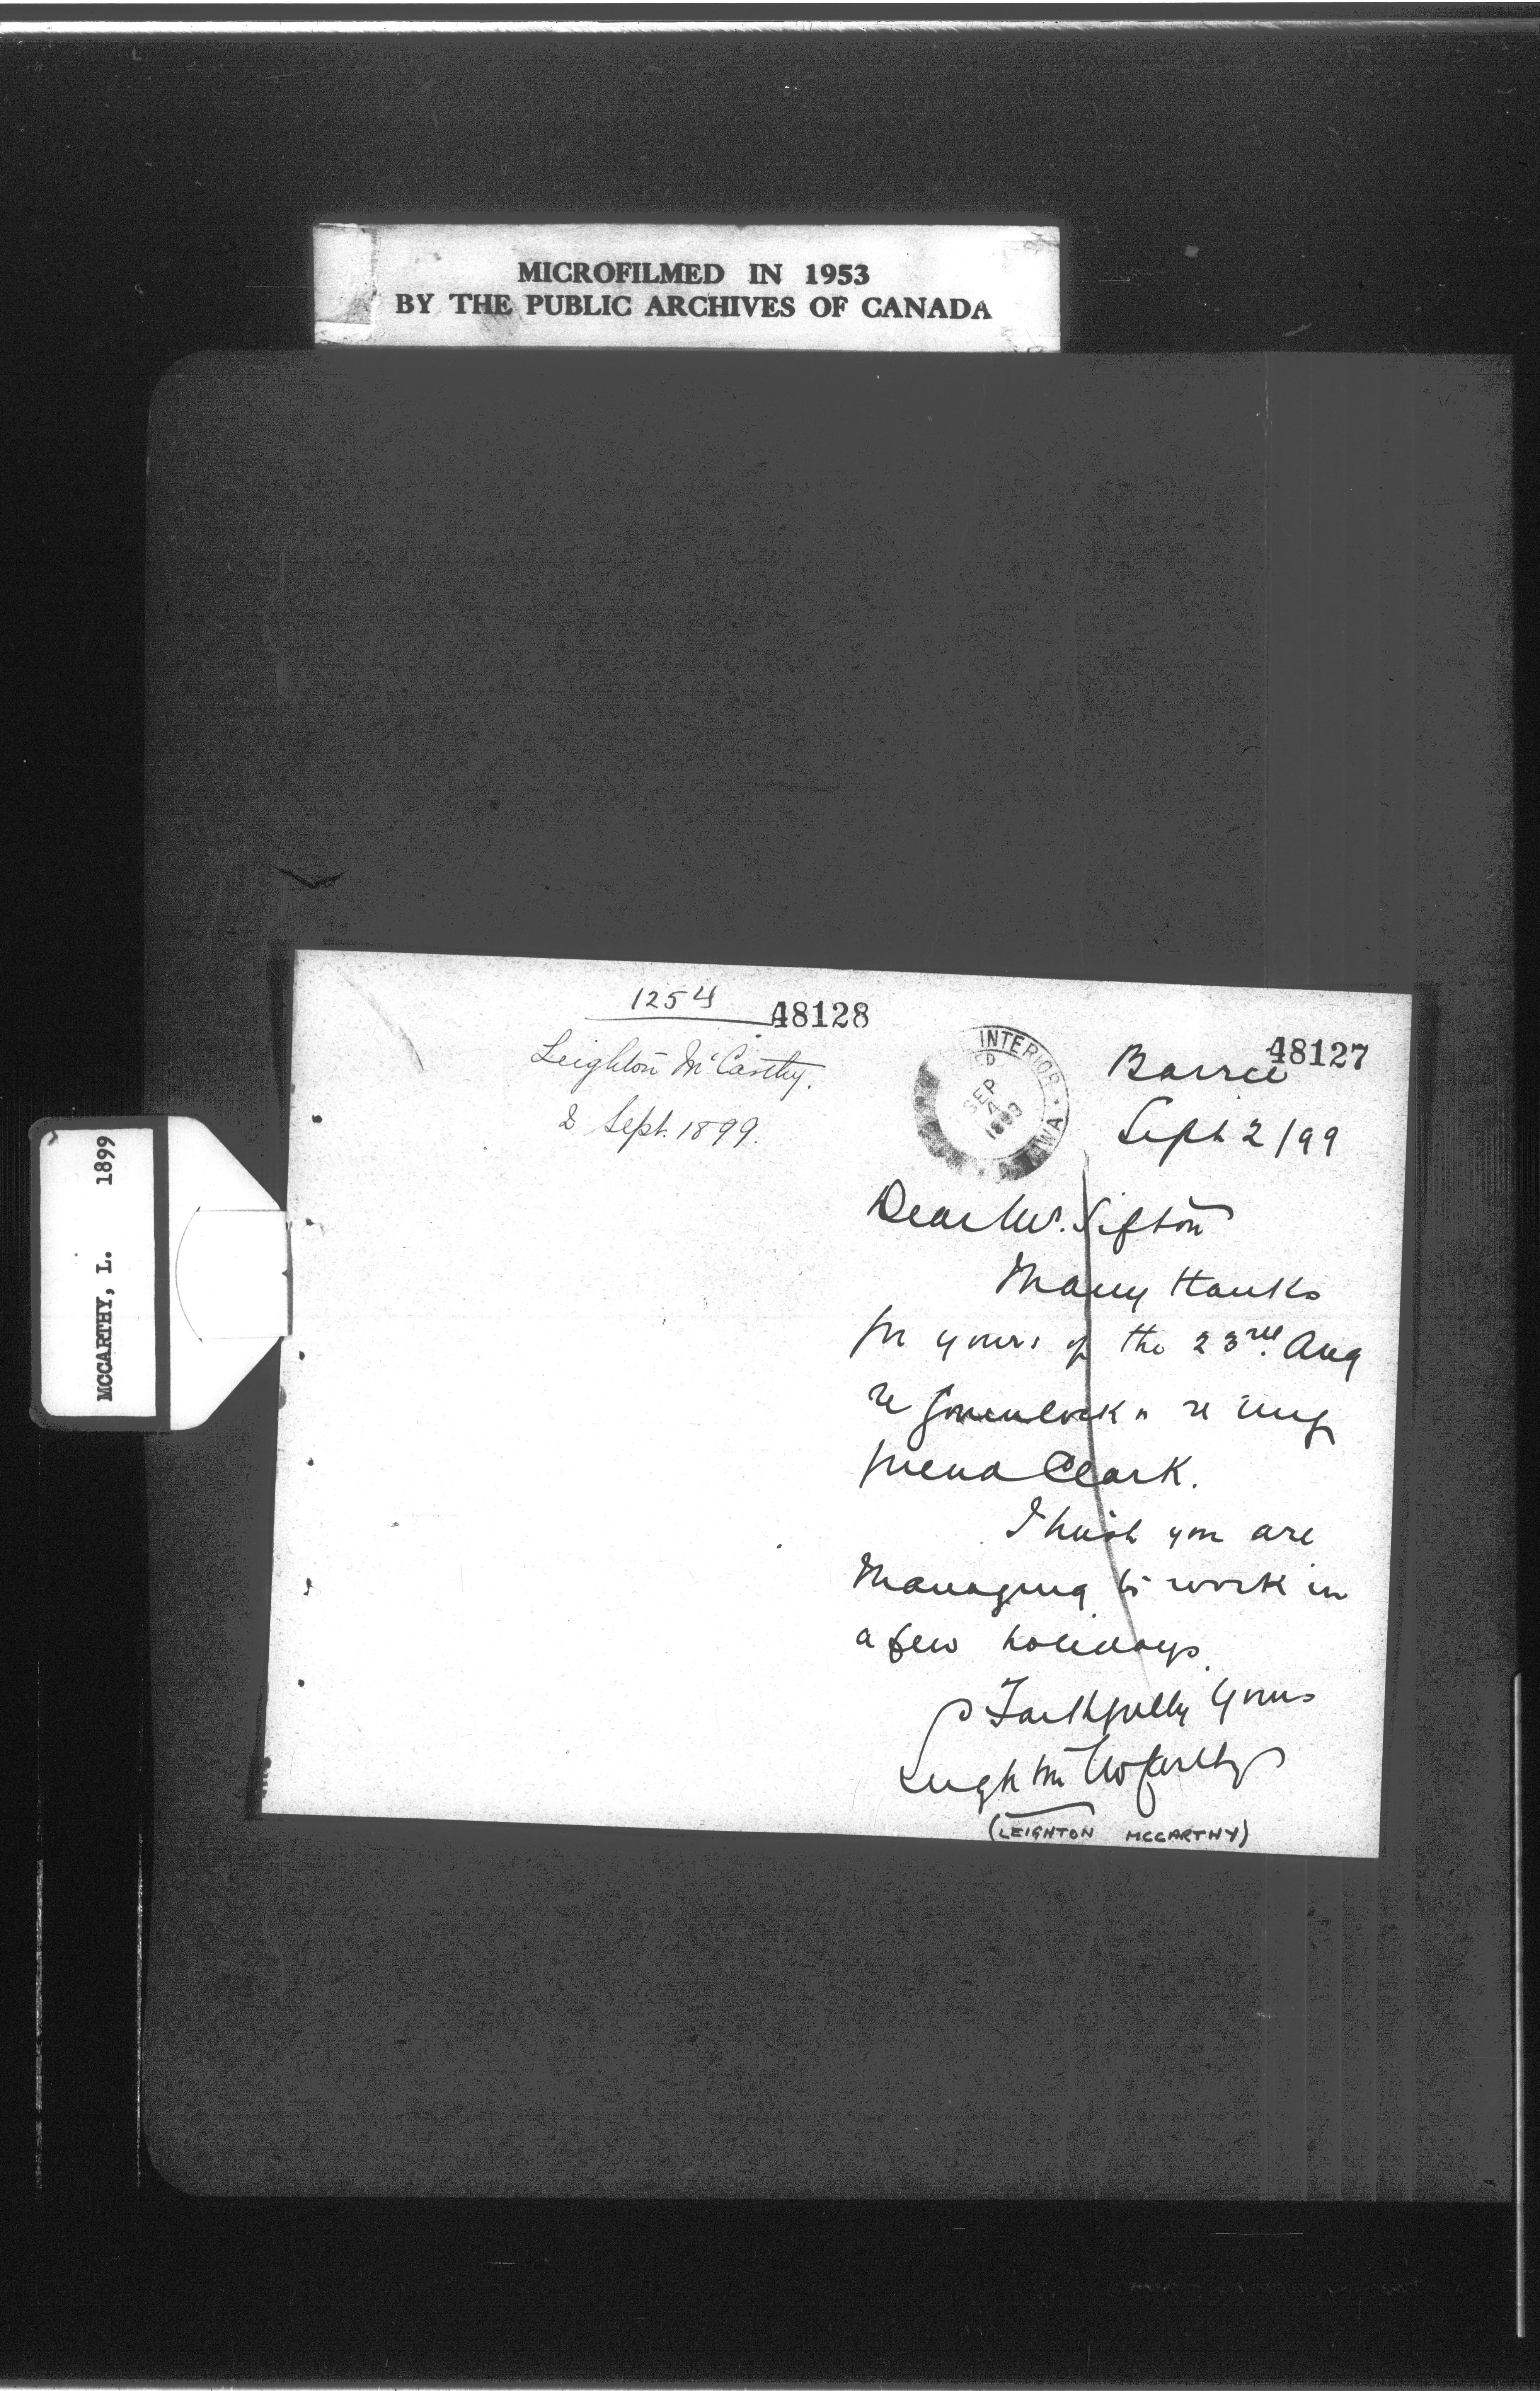 MICROFILMED IN 1953
BY THE PUBLIC ARCHIVES OF CANADA
MCCARTHY, L. 1899
1254
48128
Leighton McCarthy.
2 Sept. 1899.
INTERIOR
SEP
4
1899
48127
Barrie
Sept 2/99
Dear Mr. Sifton
Many thanks
for yours of the 23rd. Aug
re re my
friend Clark.
I trust you are
managing to work in
a few holidays.
Faithfully Yours
Leighton McCarthy
(LEIGHTON MCCARTHY)